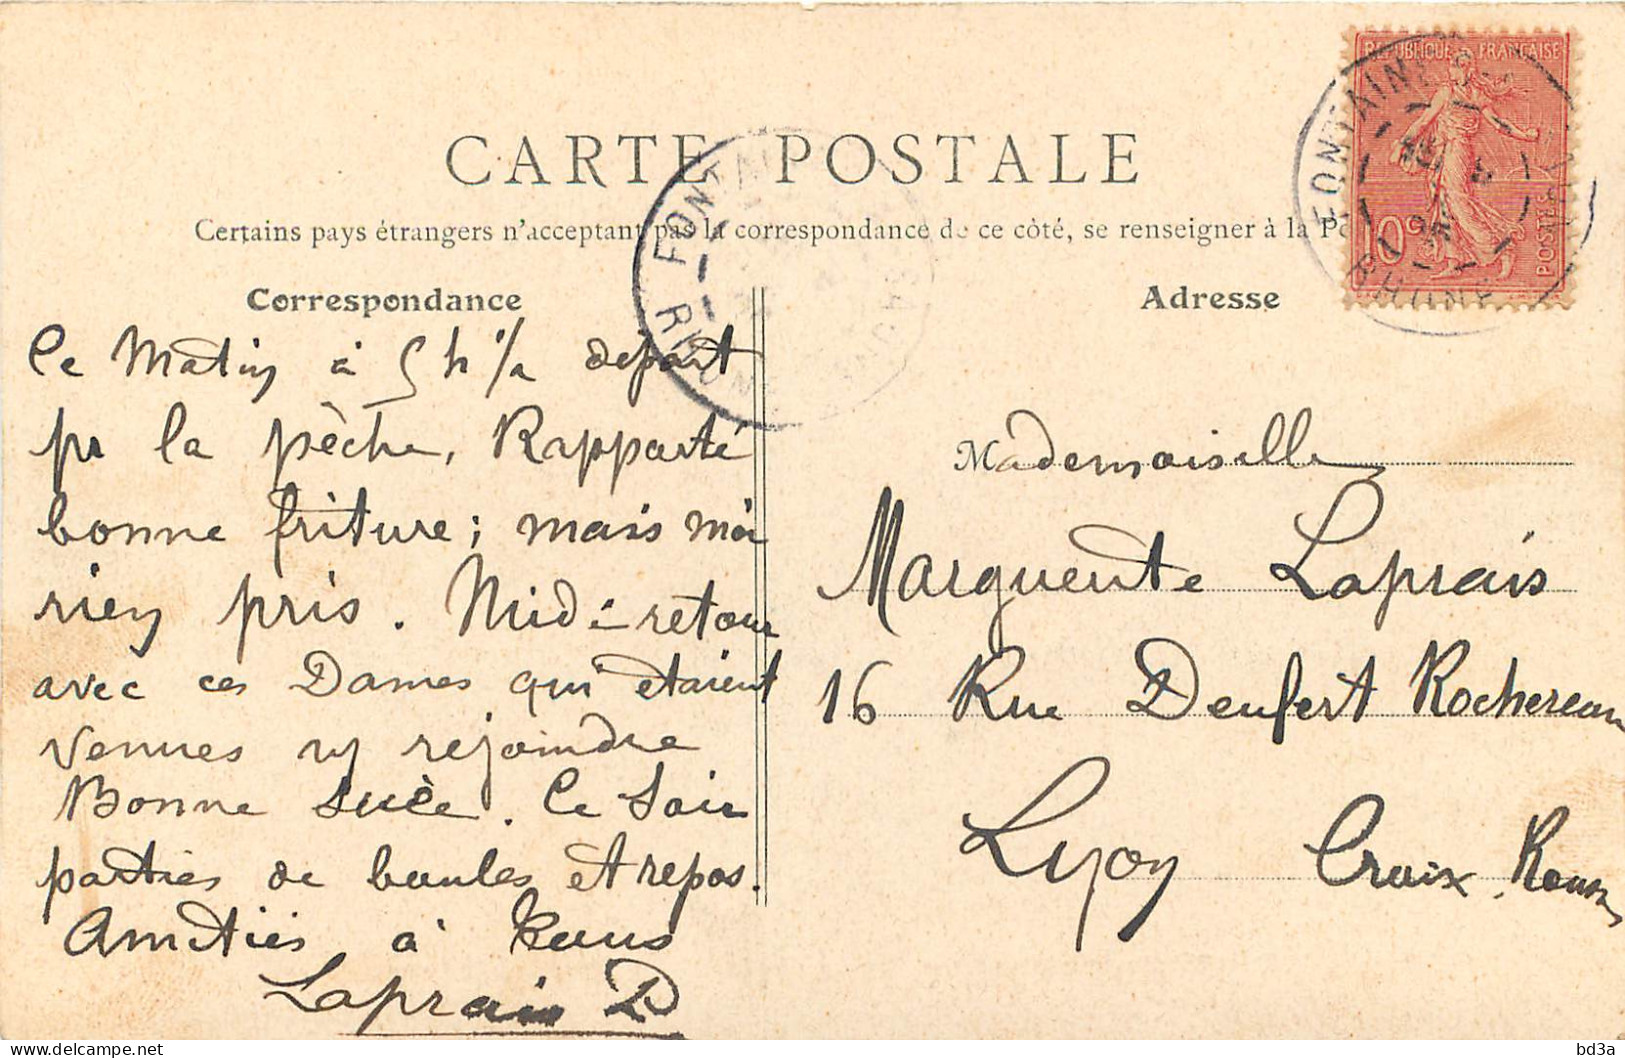 CARTE POSTALE
Certains pays étrangers n'acceptent pas la correspondance de ce côté, se renseigner à la
Correspondance
Ce Matin à 5 h ½ départ
pr la pêche, Rapporté
bonne friture; mais moi
rien pris. Midi retour
avec ces Dames qui étaient
venues ns rejoindre
Bonne sucée. Ce Soir
parties de boules et repos.
Amitiés à tous
Laprais P
Adresse
REPUBLIQUE FRANÇAISE
10c
POSTES
FONTAINES
RHONE
FONTAINES
RHONE
Mademoiselle
Marguerite Laprais
16 Rue Denfert Rochereau
Lyon Croix Rousse
bd3a